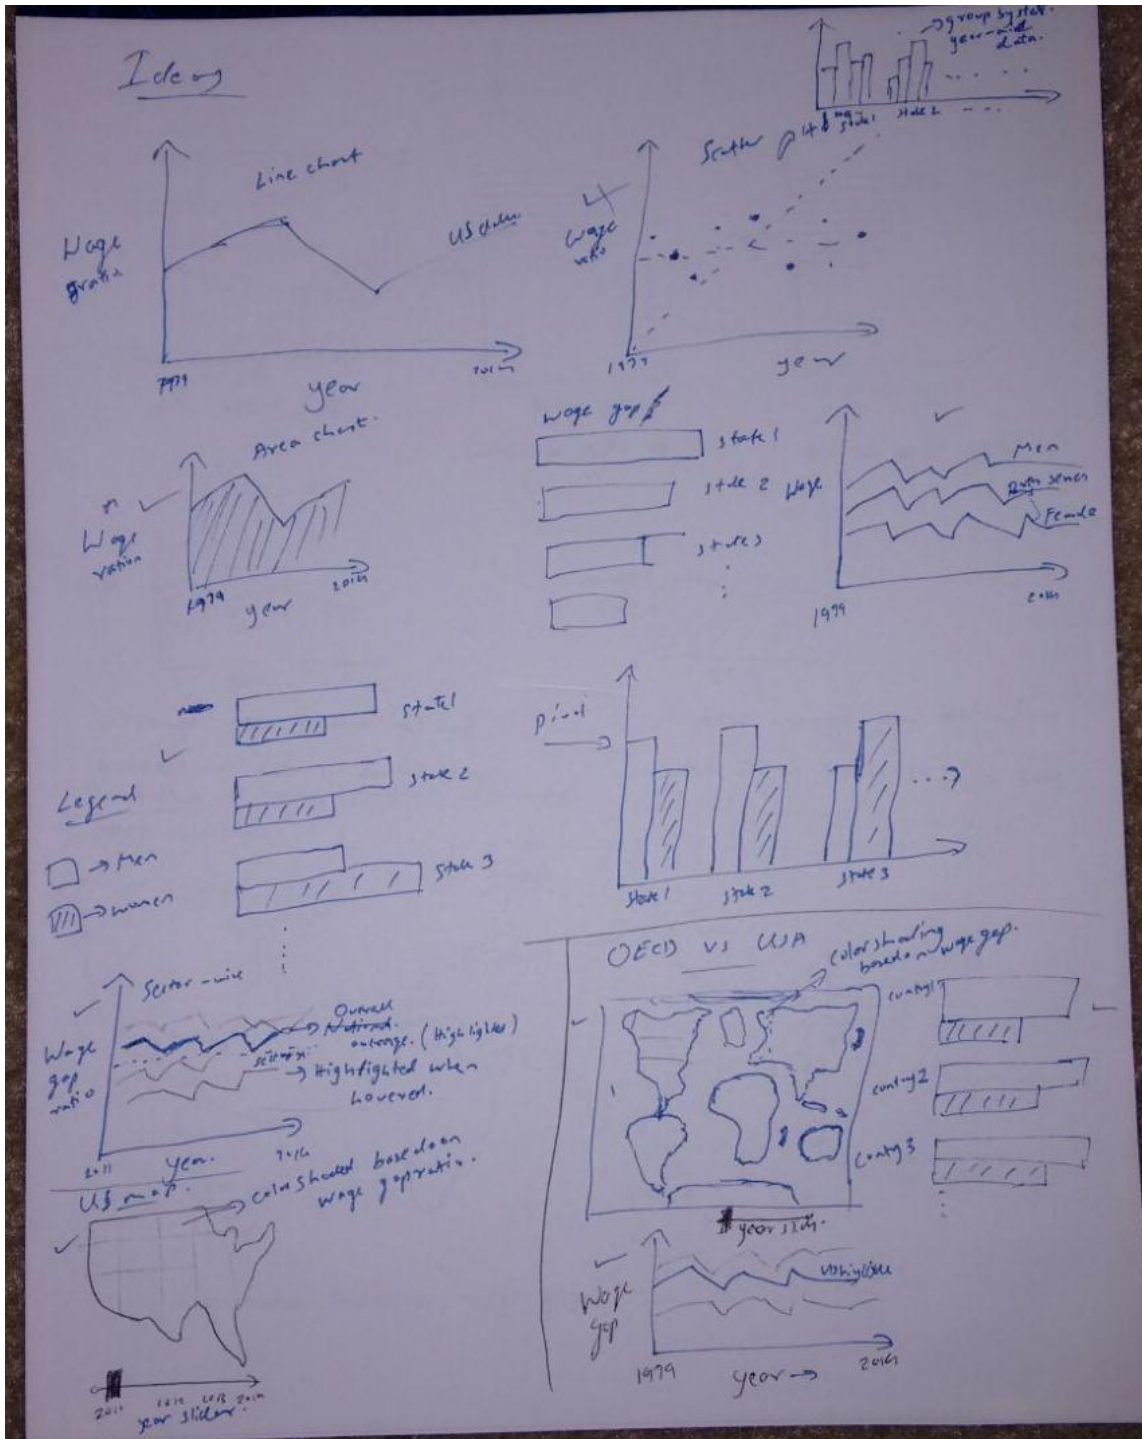 Ideas
→ group by state.
year-wise
data.
state 1
state 2
Line chart
Wage
ratio
US data
1979
2014
year
Scatter plot
Wage
ratio
1979
year
Area chart.
Wage
ration
1979
2014
year
wage gap
state 1
state 2
state 3
Wage
Men
Both sexes
Female
1979
2014
state 1
state 2
state 3
Legend
→ Men
→ women
pivot
state 1
state 2
state 3
Sector-wise
Wage
gap
ratio
Overall
average. (Highlighted)
→ Highlighted when
hovered.
2011
year.
2014
US map.
color shaded based on
wage gap ratio.
2011
2012
2013
2014
year slider.
OECD vs USA
color shading
based on wage gap.
country 1
country 2
country 3
year slider.
Wage
gap
US highlighted
1979
year →
2014